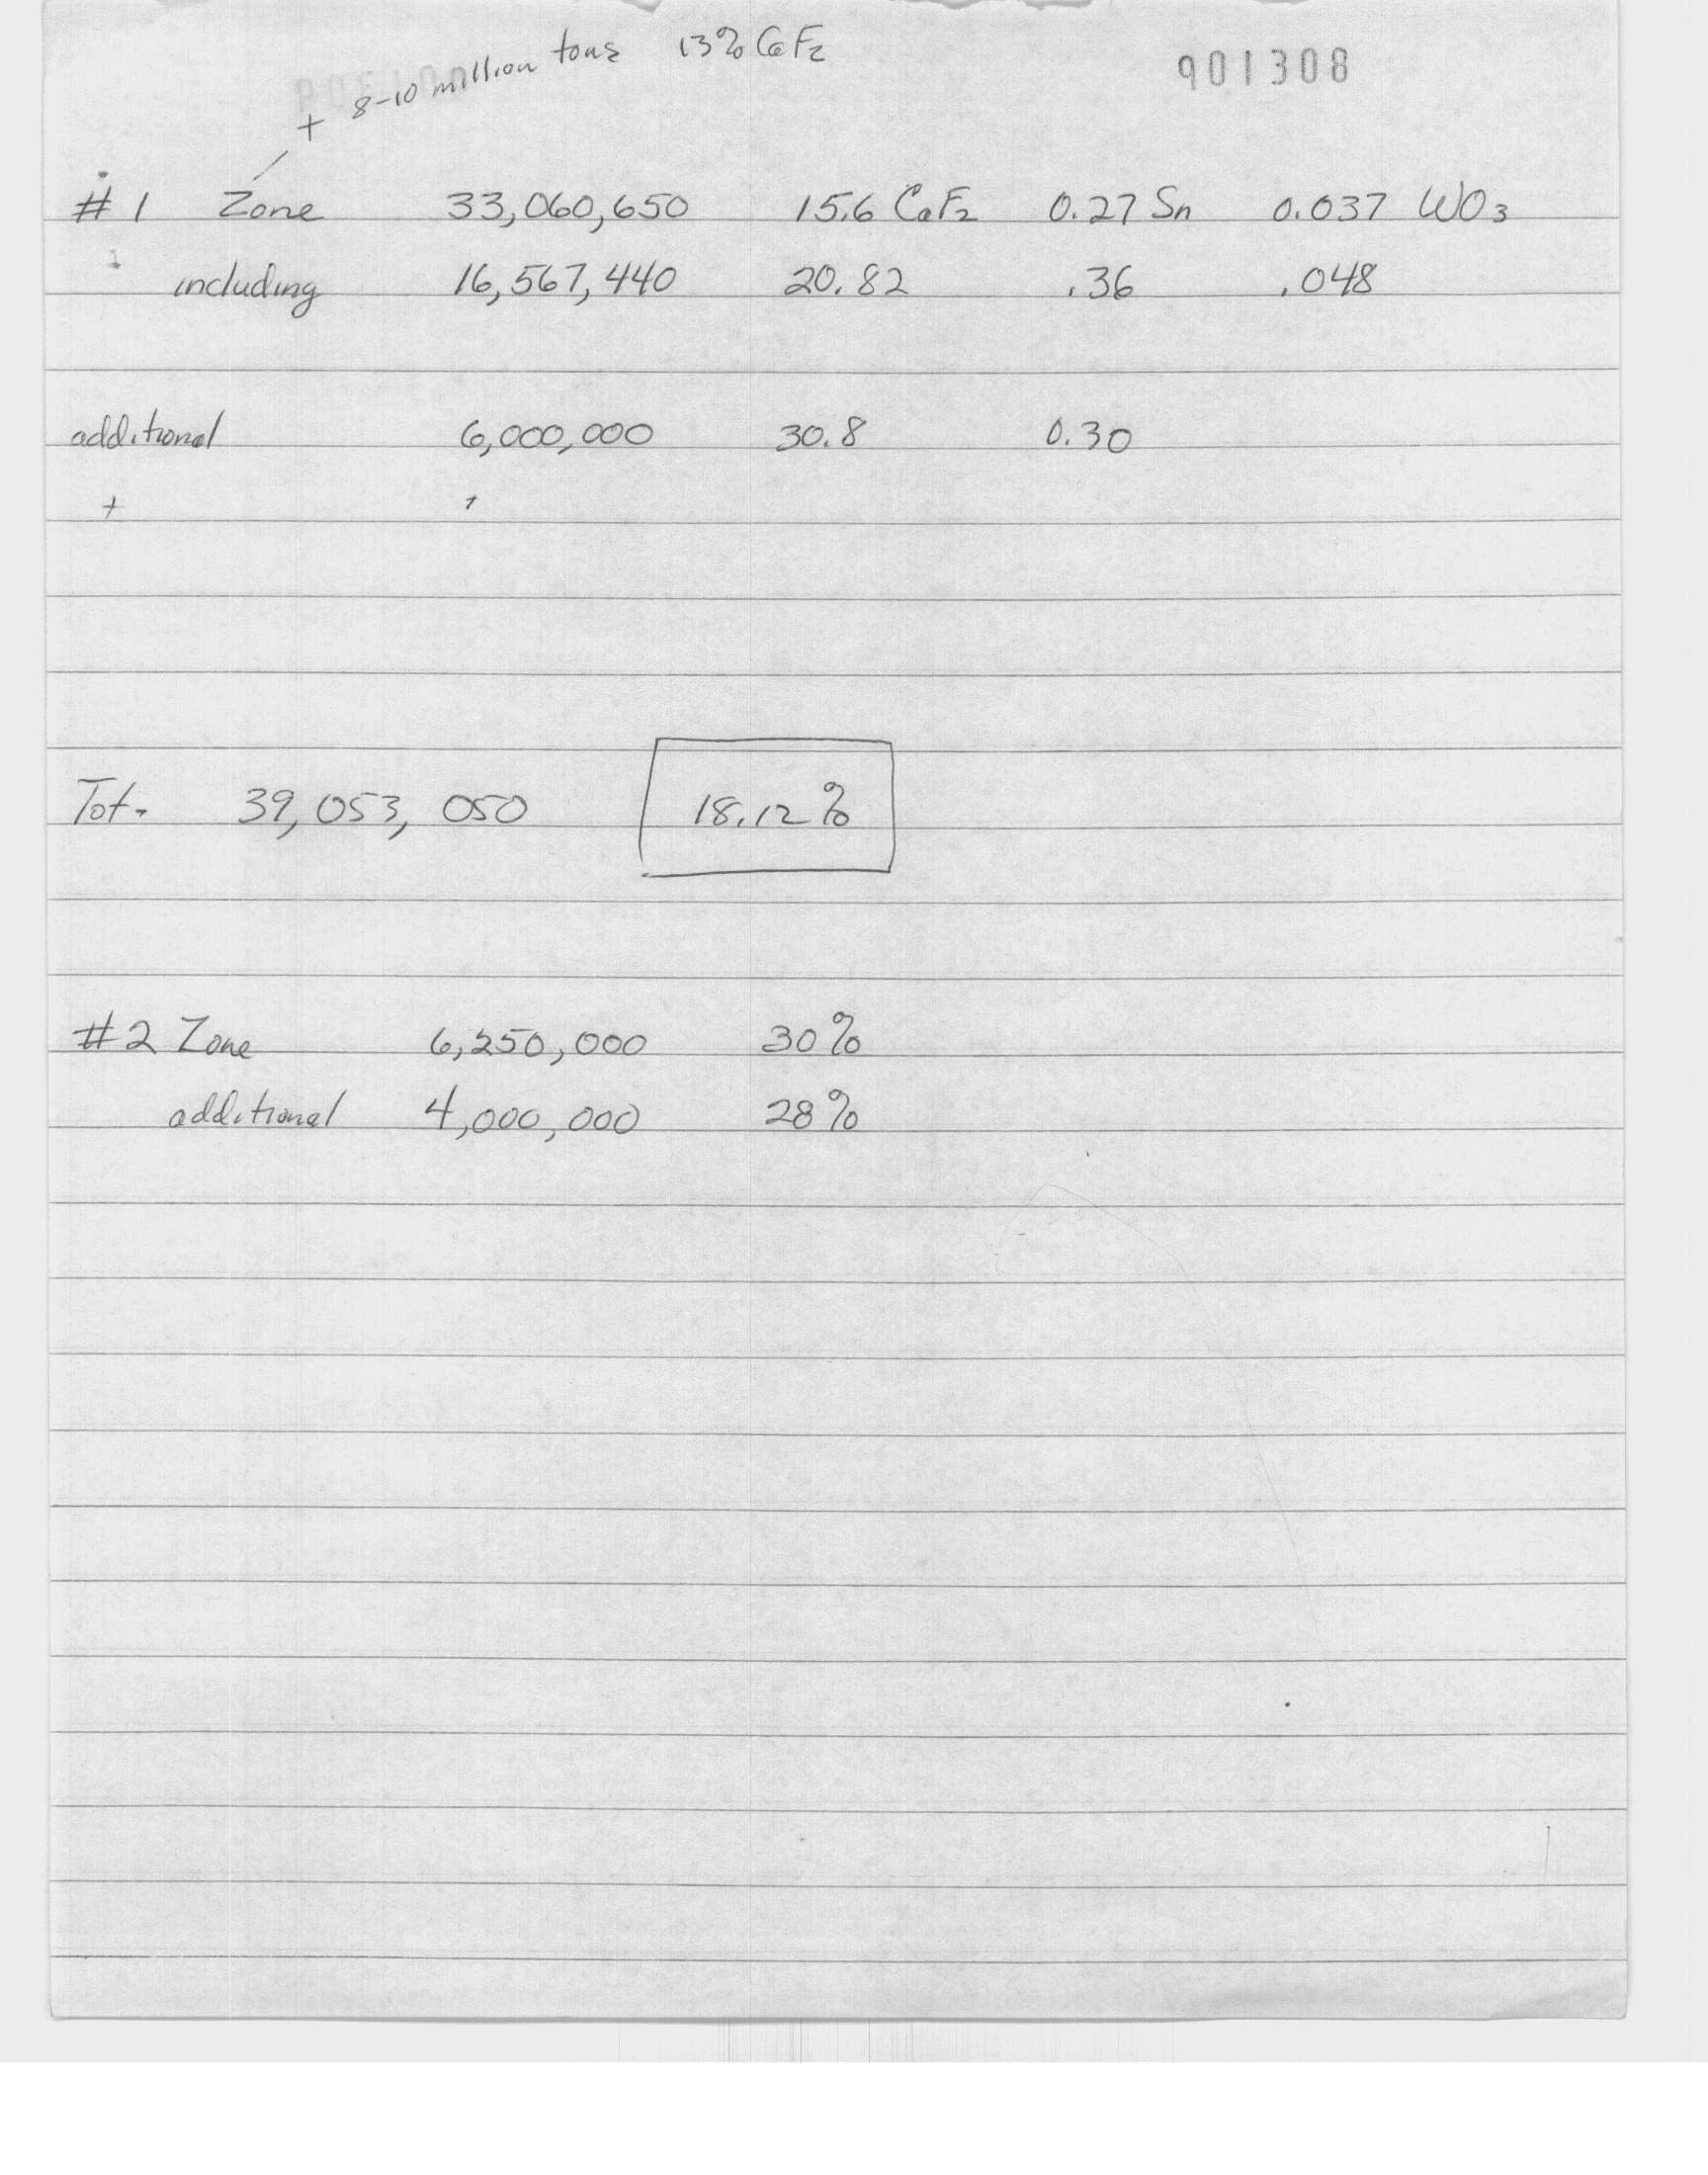 + 8-10 million tons 13% CaF2
901308
#1 Zone 33,060,650 15.6 CaF2 0.27 Sn 0.037 WO3
including 16,567,440 20.82 .36 .048
additional 6,000,000 30.8 0.30
+
Tot. 39,053,050 18.12%
#2 Zone 6,250,000 30%
additional 4,000,000 28%